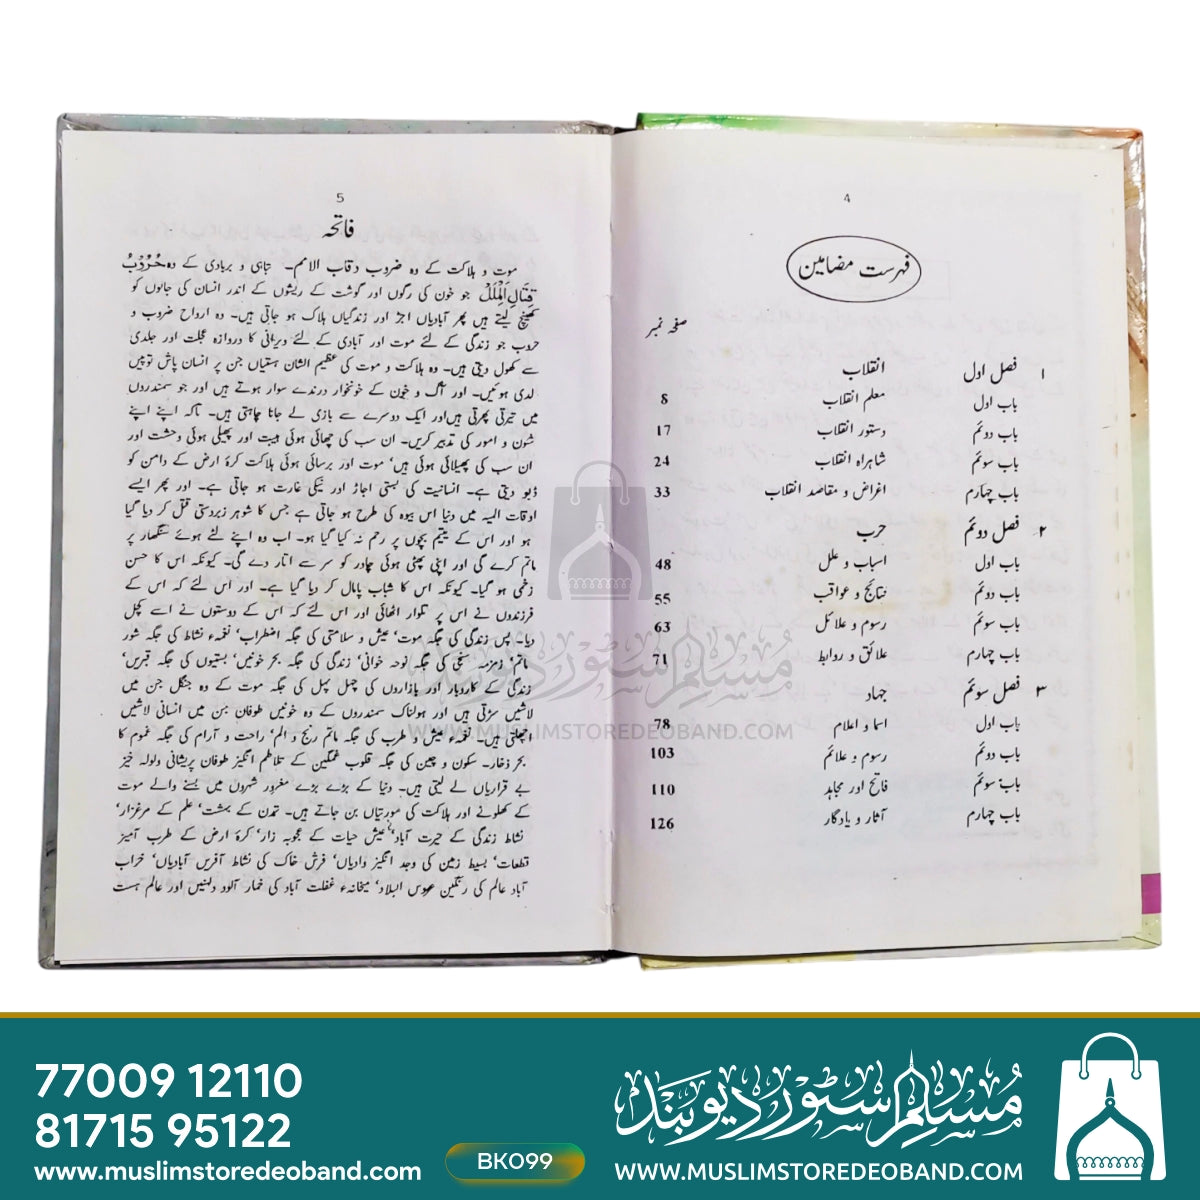 4
فہرست مضامین
صفحہ نمبر
۱ فصل اول انقلاب
باب اول معلم انقلاب 8
باب دوئم دستور انقلاب 17
باب سوئم شاہراہ انقلاب 24
باب چہارم اغراض و مقاصد انقلاب 33
۲ فصل دوئم حرب
باب اول اسباب و علل 48
باب دوئم نتائج و عواقب 55
باب سوئم رسوم و علائل 63
باب چہارم علائق و روابط 71
۳ فصل سوئم جہاد
باب اول اسما و اعلام 78
باب دوئم رسوم و علائم 103
باب سوئم فاتح اور مجاہد 110
باب چہارم آثار و یادگار 126
5
فاتحہ
موت و ہلاکت کے وہ ضروب وقاب الامم۔ تباہی و بربادی کے وہ حُرُوْبُ
قِتَالِ الْمِلَلْ جو خون کی رگوں اور گوشت کے ریشوں کے اندر انسان کی جانوں کو
کھینچ لیتے ہیں پھر آبادیاں اجڑ اور زندگیاں ہلاک ہو جاتی ہیں۔ وہ ارواح ضروب و
حروب جو زندگی کے لئے موت اور آبادی کے لئے ویرانی کا دروازہ عجلت اور جلدی
سے کھول دیتی ہیں۔ وہ ہلاکت و موت کی عظیم الشان ہستیاں جن پر انسان پاش توپیں
لدی ہوئیں۔ اور آگ و خون کے خونخوار درندے سوار ہوتے ہیں اور جو سمندروں
میں تیرتی پھرتی ہیں اور ایک دوسرے سے بازی لے جانا چاہتی ہیں۔ تاکہ اپنے اپنے
شون و امور کی تدبیر کریں۔ ان سب کی چھائی ہوئی ہیبت اور پھیلی ہوئی وحشت اور
ان سب کی پھیلائی ہوئی موت اور برسائی ہوئی ہلاکت کرۂ ارض کے دامن کو
ڈبو دیتی ہے۔ انسانیت کی بستی اجاڑ اور نیکی غارت ہو جاتی ہے۔ اور پھر ایسے
اوقات الیہ میں دنیا اس بیوہ کی طرح ہو جاتی ہے جس کا شوہر زبردستی قتل کر دیا گیا
ہو اور اس کے یتیم بچوں پر رحم نہ کیا گیا ہو۔ اب وہ اپنے لٹے ہوئے سنگھار پر
ماتم کرے گی اور اپنی پھٹی ہوئی چادر کو سر سے اتار دے گی۔ کیونکہ اس کا حسن
زخمی ہو گیا۔ کیونکہ اس کا شباب پامال کر دیا گیا ہے۔ اور اس لئے کہ اس کے
فرزندوں نے اس پر تلوار اٹھائی اور اس لئے کہ اس کے دوستوں نے اسے کچل
دیا۔ پس زندگی کی جگہ موت‘ عیش و سلامتی کی جگہ اضطراب‘ نغمۂ نشاط کی جگہ شور
ماتم‘ زمزمہ سنجی کی جگہ نوحہ خوانی‘ زندگی کی جگہ بحر خونیں‘ بستیوں کی جگہ قبریں‘
زندگی کے کاروبار اور بازاروں کی چہل پہل کی جگہ موت کے وہ جنگل جن میں
لاشیں سڑتی ہیں اور ہولناک سمندروں کے وہ خونیں طوفان جن میں انسانی لاشیں
اچھلتی ہیں۔ نغمۂ عیش و طرب کی جگہ ماتم رنج و الم‘ راحت و آرام کی جگہ غموم کا
بحر ذخار۔ سکون و چین کی جگہ قلوب غمگین کے تلاطم انگیز طوفان پریشانی ولولہ خیز
بے قراریاں لے لیتی ہیں۔ دنیا کے بڑے بڑے مغرور شہروں میں بسنے والے موت
کے کھلونے اور ہلاکت کی مورتیاں بن جاتے ہیں۔ تمدن کے بہشت‘ علم کے مرغزار‘
نشاط زندگی کے حیرت آباد‘ عیش حیات کے عجوبہ زار‘ کرۂ ارض کے طرب آمیز
قطعات‘ بسیط زمین کی وجد انگیز وادیاں‘ فرش خاک کی نشاط آفریں آبادیاں‘ خراب
آباد عالم کی رنگین عروس البلاد‘ میخانۂ غفلت آباد کی خمار آلود دلہنیں اور عالم ہست
مسلم سٹور دیوبند
WWW.MUSLIMSTOREDEOBAND.COM
77009 12110
81715 95122
www.muslimstoredeoband.com
BK099
مسلم سٹور دیوبند
WWW.MUSLIMSTOREDEOBAND.COM